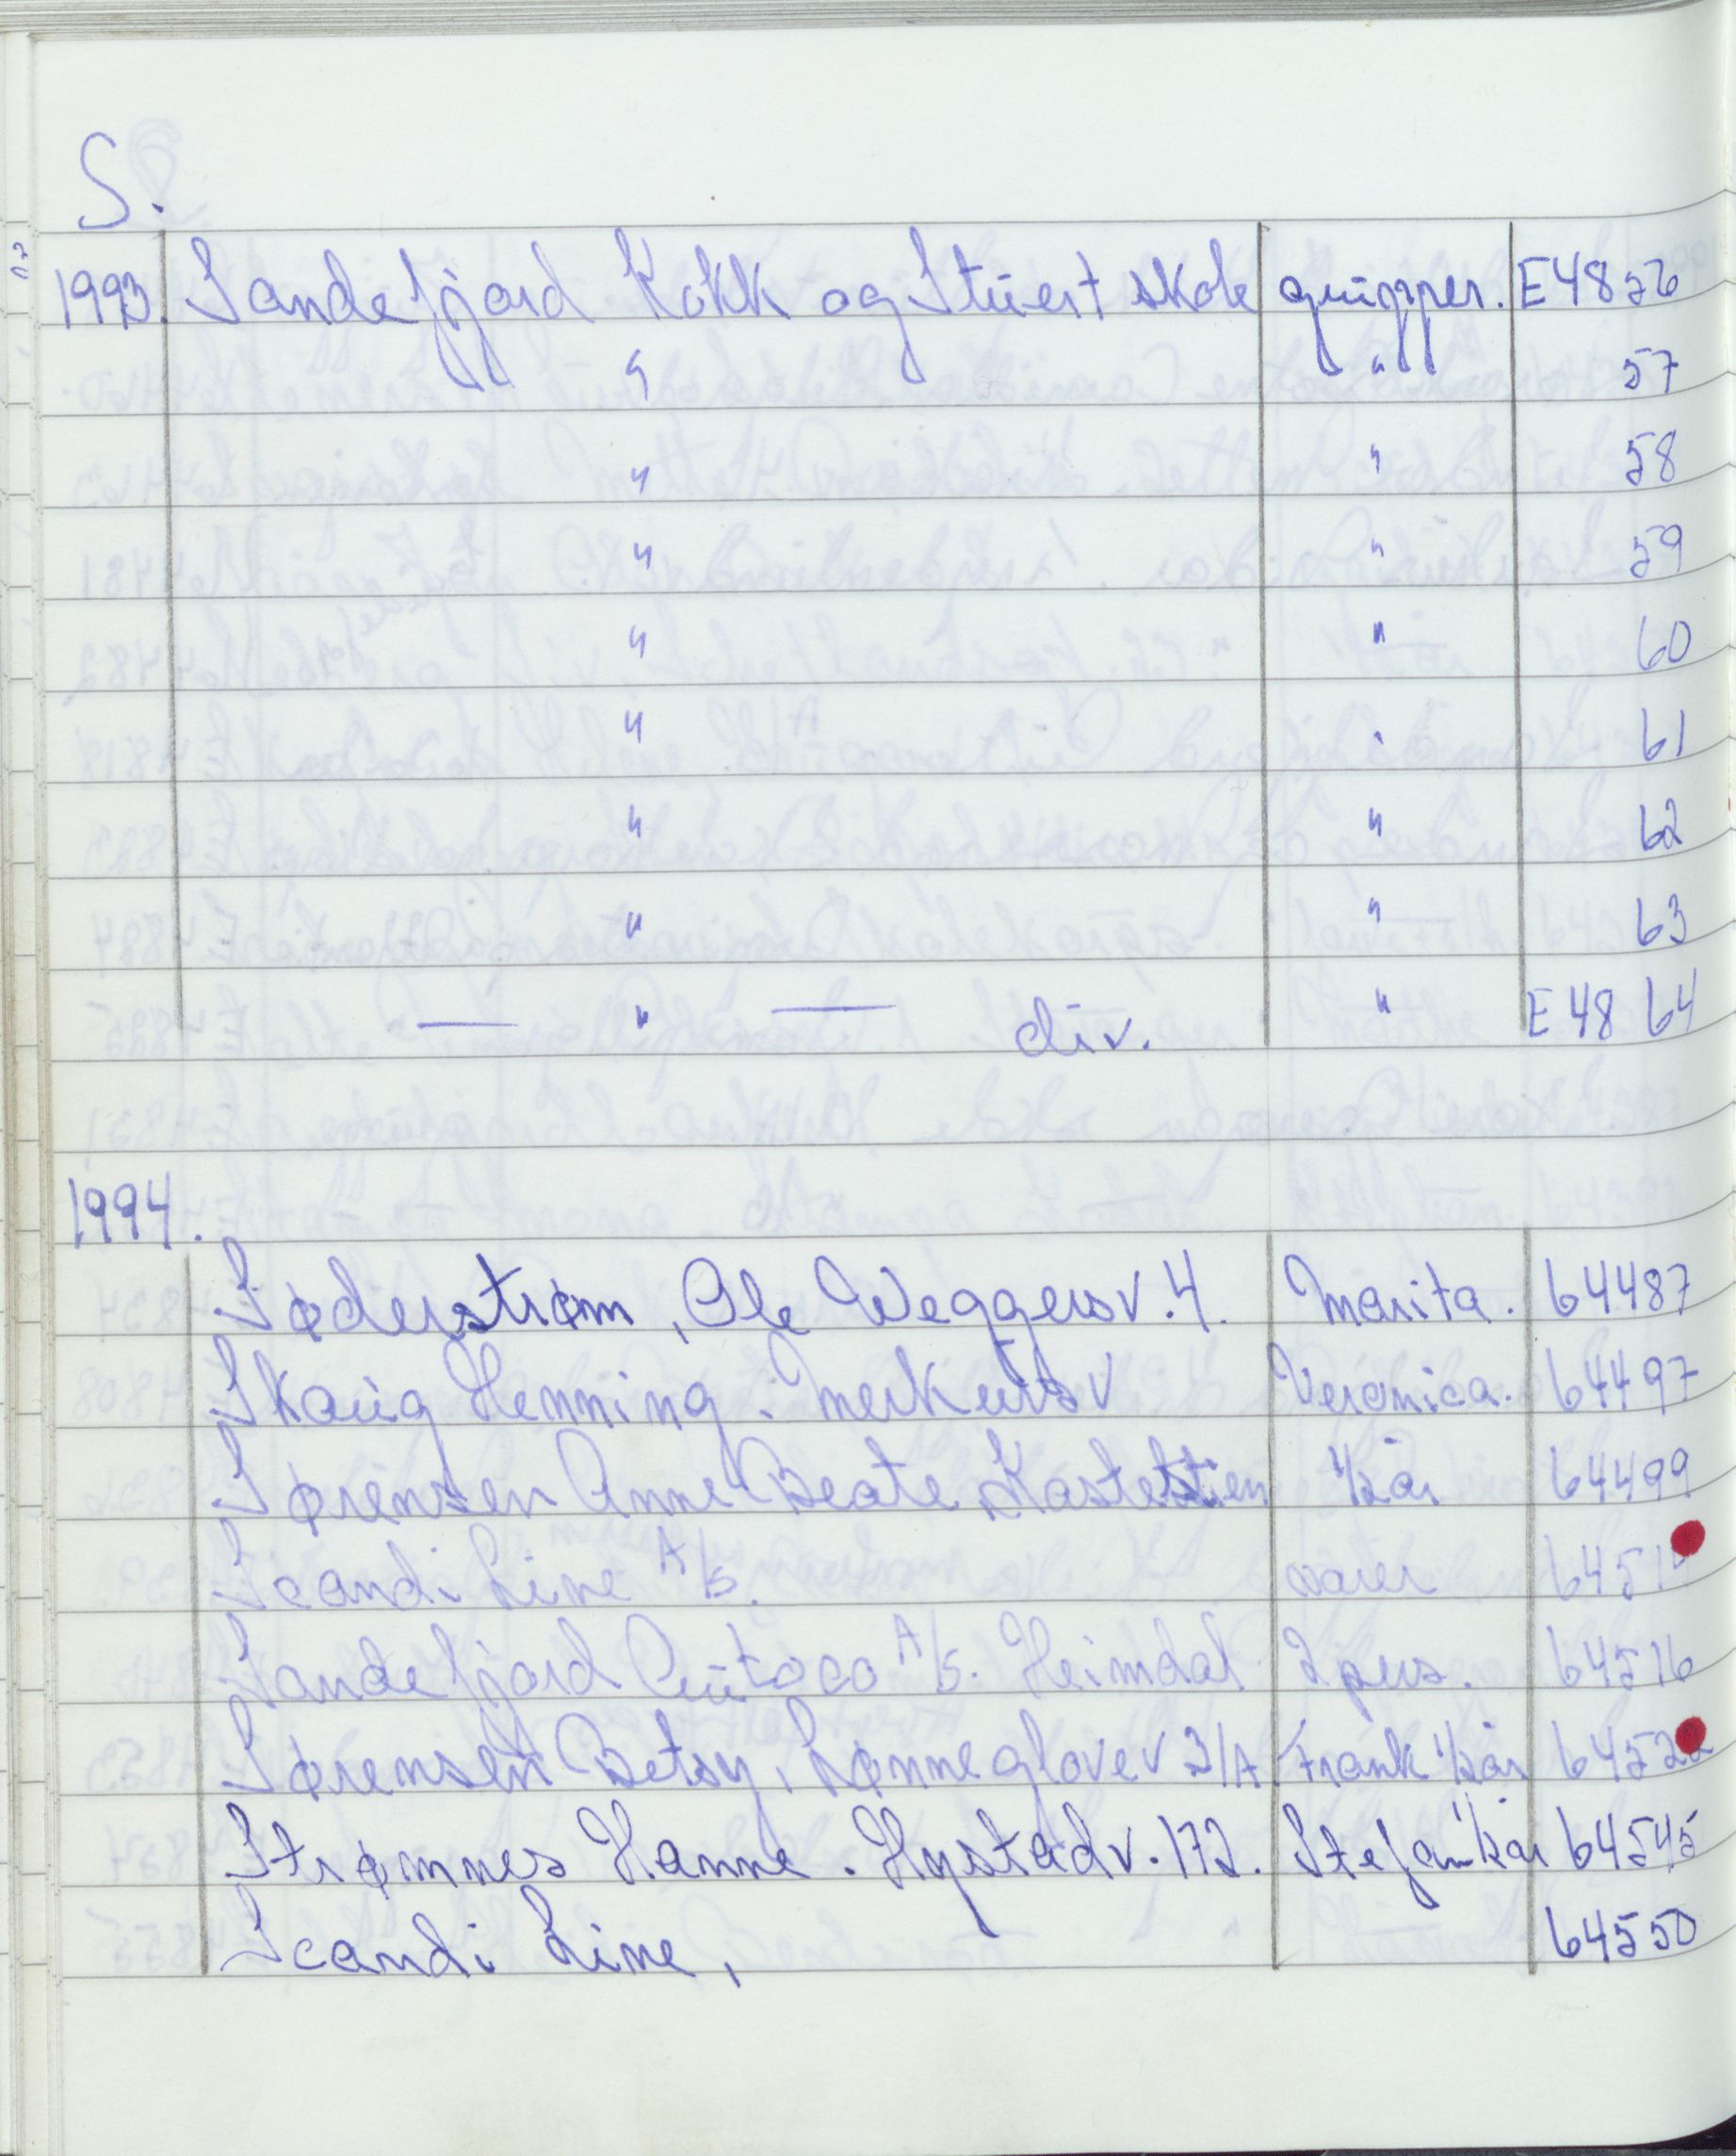 S.
1993. Sandefjord Kokk og Stüert skole grüpper. E4856
" " 57
" " 58
" " 59
" " 60
" " 61
" " 62
" " 63
— " — div. " E4864
1994.
Søderstrøm, Ole Weggersv. 4. Marita. 64487
Skaüg Henning. Merkursv Veronica. 64497
Sørensen Anne Beate Kastetstien 1/2 år 64499
Scandi Line A/S. varer 6451
Sandefjord Aütoco A/S. Heimdal 2 pers. 64516
Sørensen Betsy, Lønneglovev 3/A Frank 1/2 år 64522
Strømnes Hanne. Hystadv. 172. Stefan 1/2 år 64545
Scandi Line, 64550